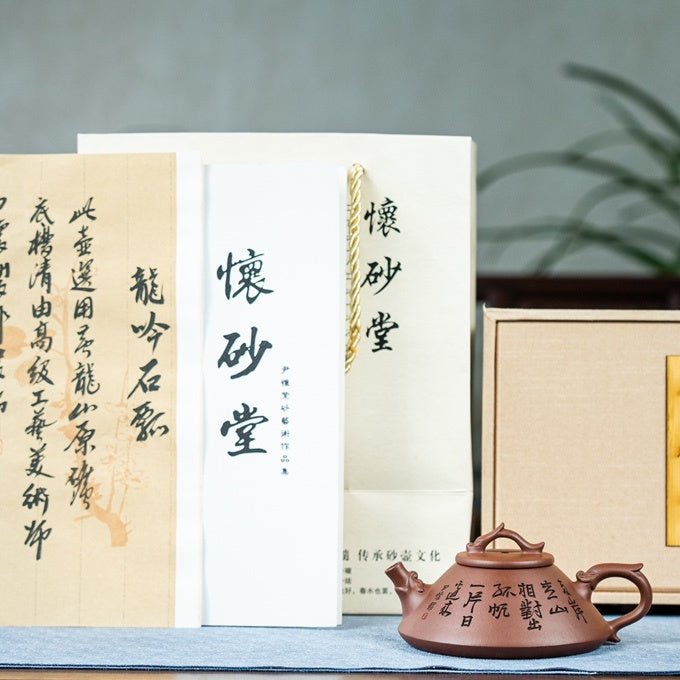 龍吟石瓢
此壺選用黃龍山原礦
底槽清由高級工藝美術師
懷砂堂
尹懷紫砂藝術作品集
懷砂堂
传承砂壶文化
青山
相對出
孤帆
一片日
邊來